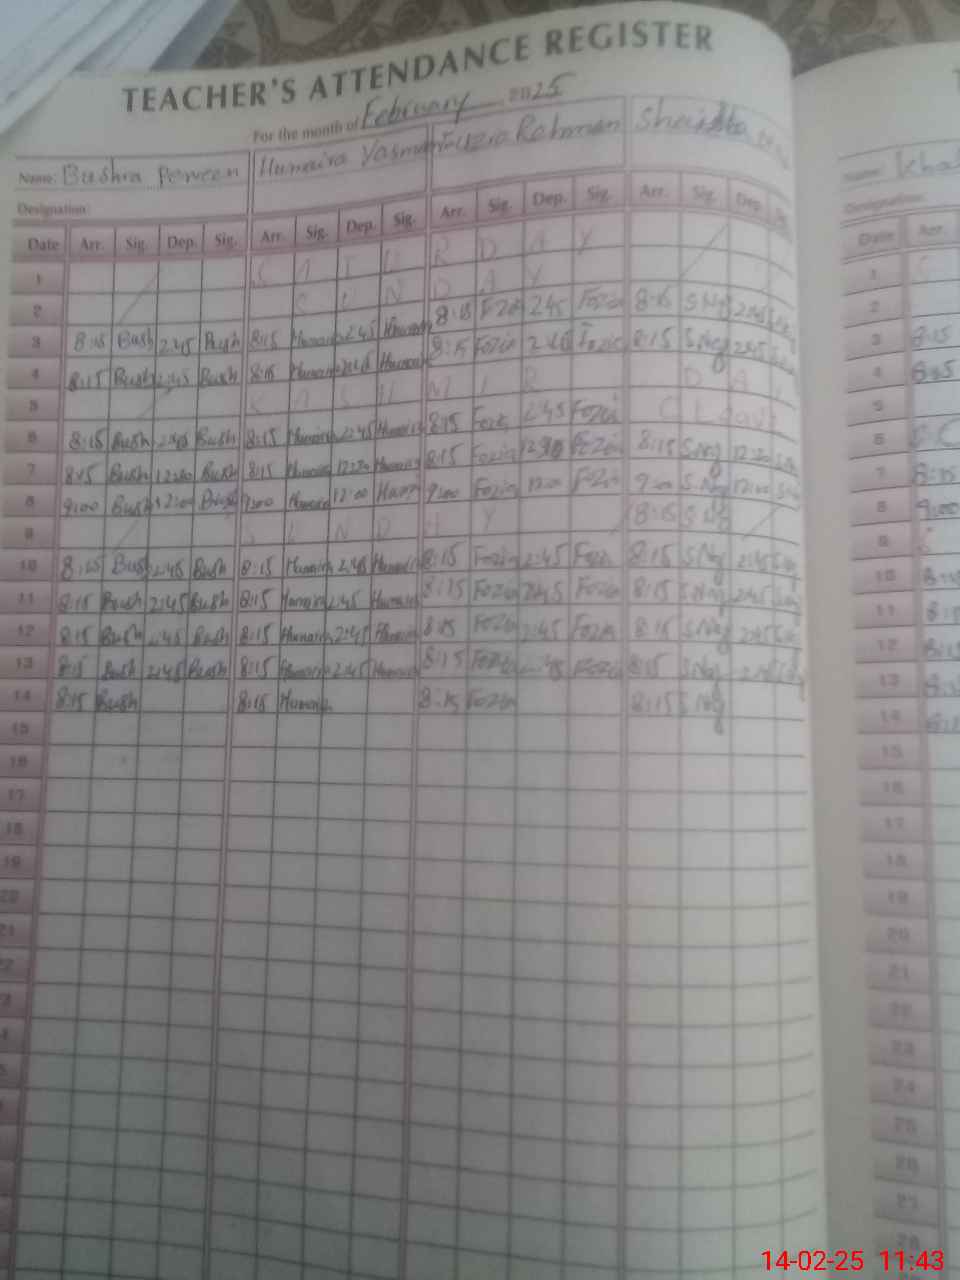 TEACHER'S ATTENDANCE REGISTER
For the month of February 2025
Name: Bushra Perveen Humaira Yasmin Fozia Rehman Shaista
Designation:
Date Arr. Sig. Dep. Sig. Arr. Sig. Dep. Sig. Arr. Sig. Dep. Sig. Arr. Sig. Dep.
1 S A T U R D A Y
2 S U N D A Y
3 8:15 Bush 2:45 Bush 8:15 Humaira 2:45 Humaira 8:15 Fozia 2:45 Fozia 8:15 S.Naz 2:45
4 8:15 Bush 2:45 Bush 8:15 Humaira 2:45 Humaira 8:15 Fozia 2:45 Fozia 8:15 S.Naz 2:45
5 K A S H M I R D A Y
6 8:15 Bush 2:45 Bush 8:15 Humaira 2:45 Humaira 8:15 Fozia 2:45 Fozia C Leave
7 8:15 Bush 12:30 Bush 8:15 Humaira 12:30 Humaira 8:15 Fozia 12:30 Fozia 8:15 S.Naz 12:30
8 9:00 Bush 12:00 Bush 9:00 Humaira 12:00 Humaira 9:00 Fozia 12:00 Fozia 9:00 S.Naz 12:00
9 S U N D A Y 8:15 S.Naz
10 8:15 Bush 2:45 Bush 8:15 Humaira 2:45 Humaira 8:15 Fozia 2:45 Fozia 8:15 S.Naz 2:45
11 8:15 Bush 2:45 Bush 8:15 Humaira 2:45 Humaira 8:15 Fozia 2:45 Fozia 8:15 S.Naz 2:45
12 8:15 Bush 2:45 Bush 8:15 Humaira 2:45 Humaira 8:15 Fozia 2:45 Fozia 8:15 S.Naz 2:45
13 8:15 Bush 2:45 Bush 8:15 Humaira 2:45 Humaira 8:15 Fozia 2:45 Fozia 8:15 S.Naz 2:45
14 8:15 Bush 8:15 Humaira 8:15 Fozia 8:15 S.Naz
15
16
17
18
19
20
21
22
Name: Kha
Designation:
Date Arr.
1
2
3 8:15
4
5
6
7 8:15
8 9:00
9
10
11
12
13
14
15
16
17
18
19
20
21
22
23
24
25
26
27
28
14-02-25 11:43